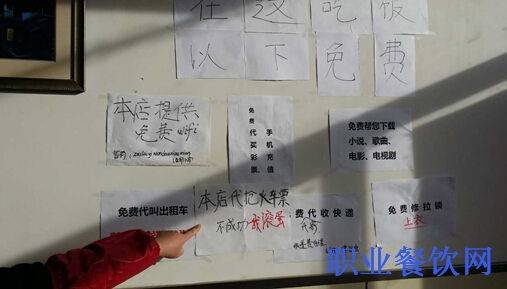 在这吃饭
以下免费
本店提供
免费wifi
免费
代买彩票
手机充值
免费帮您下载
小说、歌曲、
电影、电视剧
免费代叫出租车
本店代抢火车票
不成功我滚蛋
费代收快递
免费修拉锁
上衣
职业餐饮网